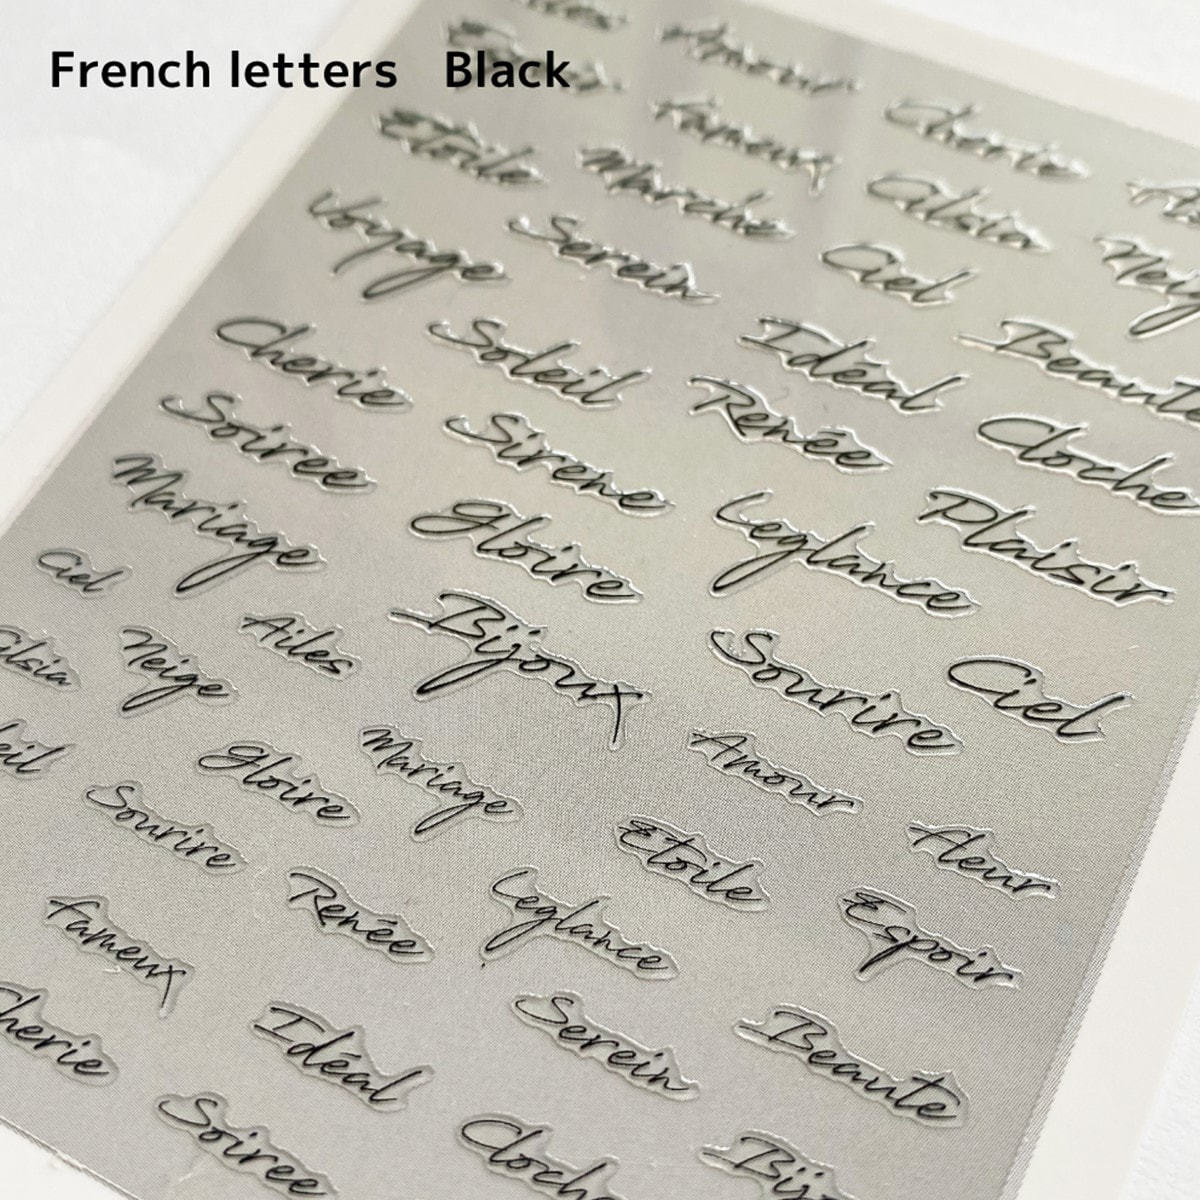 French letters Black
Amour
Cherie
Fameux
Etoile
Marche
Cilsia
Neig
Voyage
Serein
Ciel
Cherie
Soleil
Idéal
Beaute
Soiree
Sirene
Renée
Cloche
Mariage
Gloire
Leglance
Plaisir
Ciel
Ailes
Bijoux
Sourire
Ciel
Cilsia
Neige
eil
Gloire
Mariage
Amour
Sourire
Etoile
fleur
Renée
Leglance
Espoir
fameux
Cherie
Idéal
Serein
Beaute
Soiree
Cloch
Bij